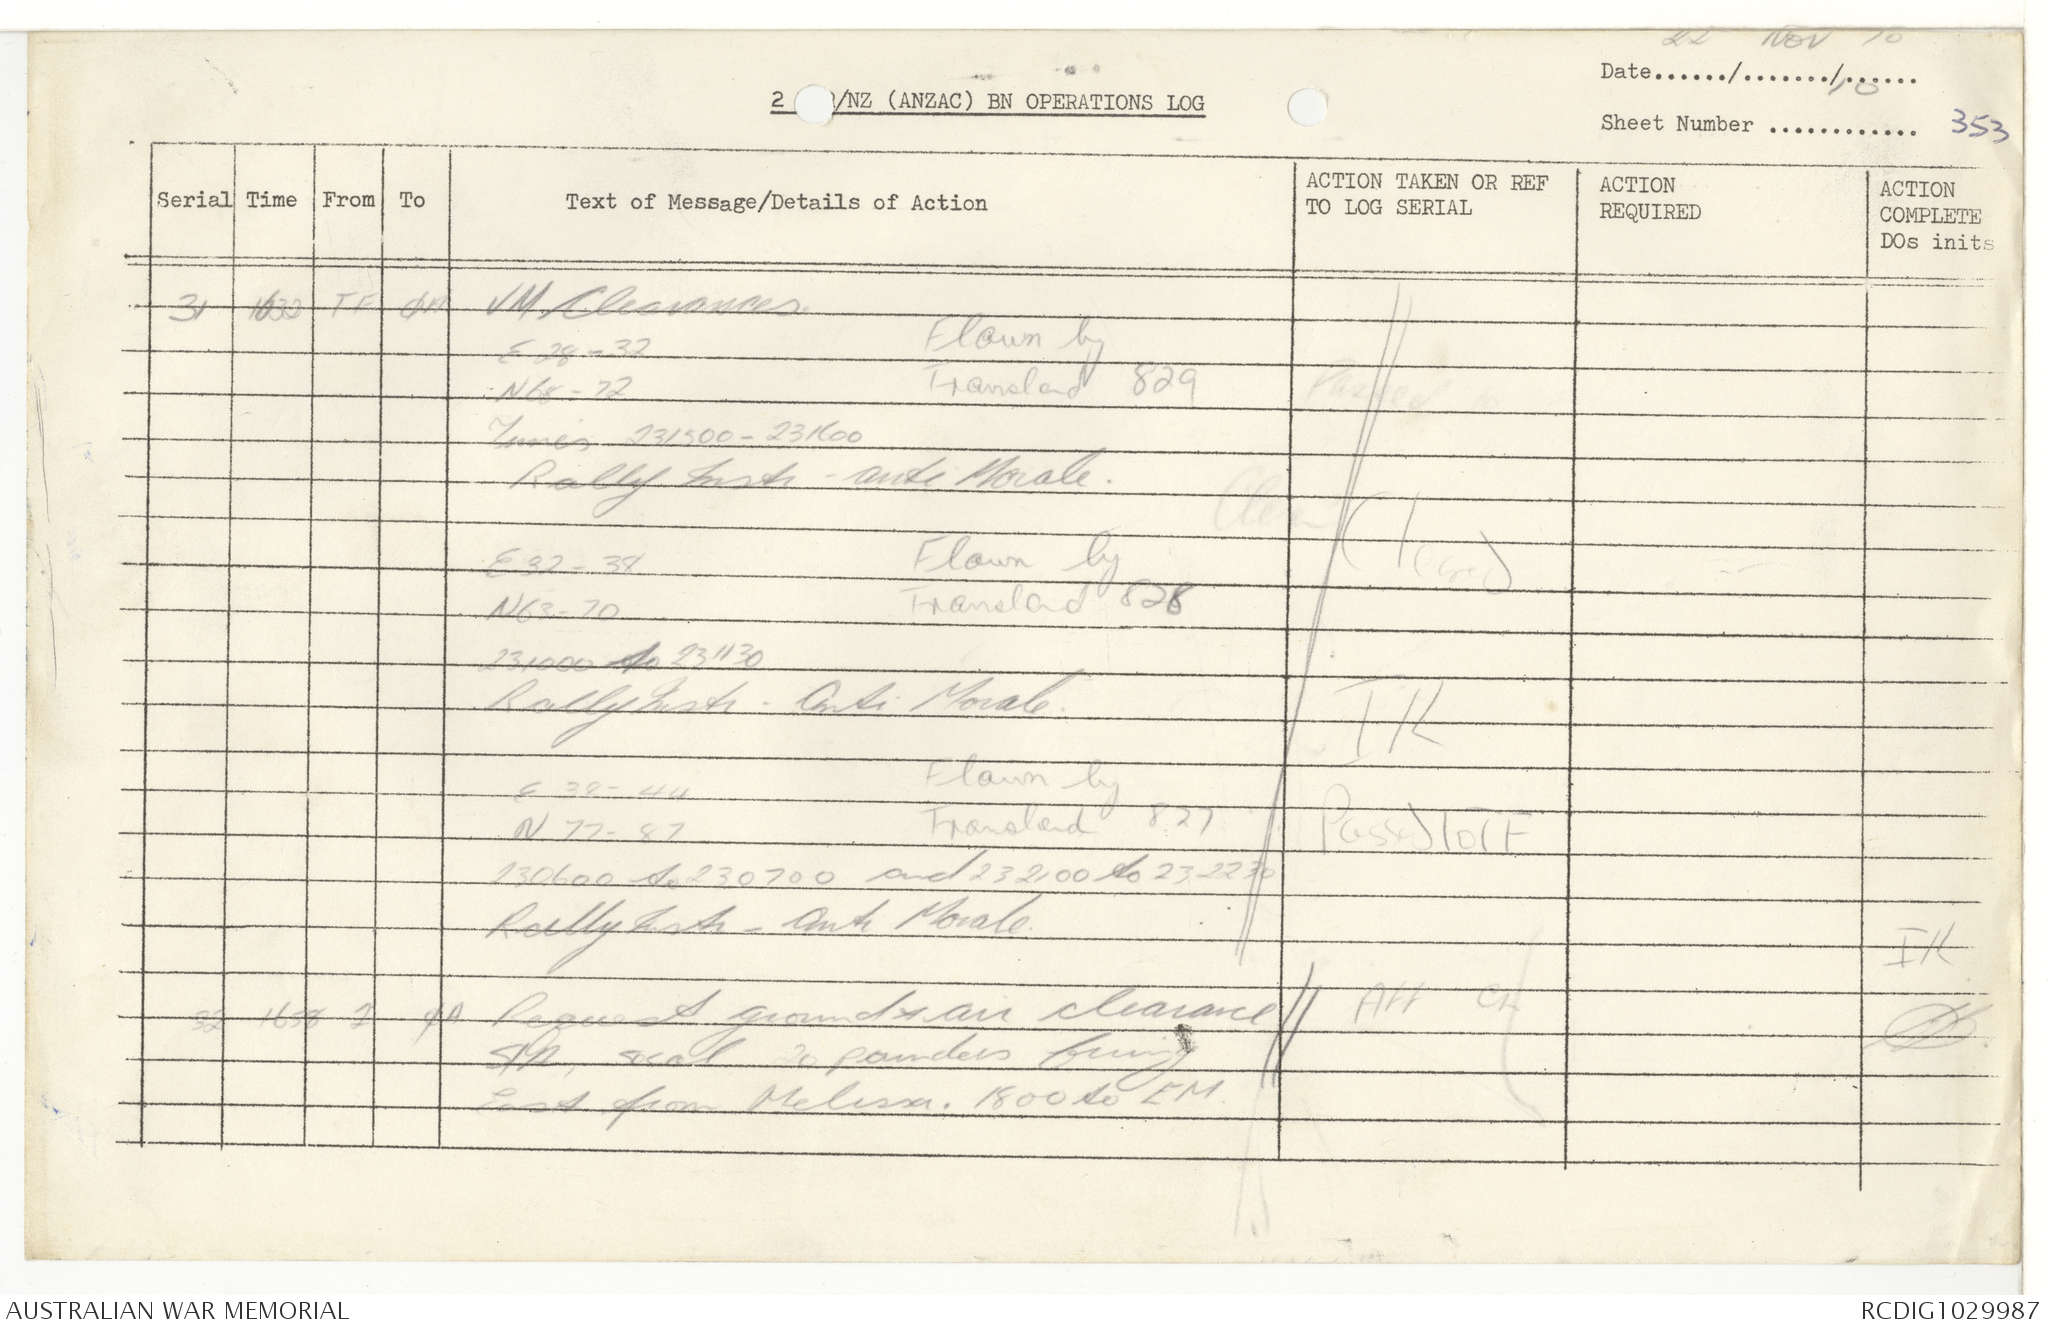 22 NOV 70
Date....../......./......
10
2 R/NZ (ANZAC) BN OPERATIONS LOG
Sheet Number ............ 353
Serial Time From To Text of Message/Details of Action ACTION TAKEN OR REF TO LOG SERIAL ACTION REQUIRED ACTION COMPLETE DOs inits
31 1632 TF ØA VM Clearances.
E 28-32 Flown by
N68-72 Transland 829 Passed
Times 231500-231600
Rally Instr - anti Morale.
Clear Cleared
E 32-38 Flown by
N63-70 Transland 828
231000 to 231130
Rally Instr - Anti Morale. IK
E 38-44 Flown by
N 77-87 Transland 827 Passed to TF
230600 to 230700 and 232100 to 232230
Rally Instr - Anti Morale.
IK
32 1658 2 ØA Request ground & air clearance AH
20 pounders firing
East from Melissa. 1800 to EM.
AUSTRALIAN WAR MEMORIAL RCDIG1029987